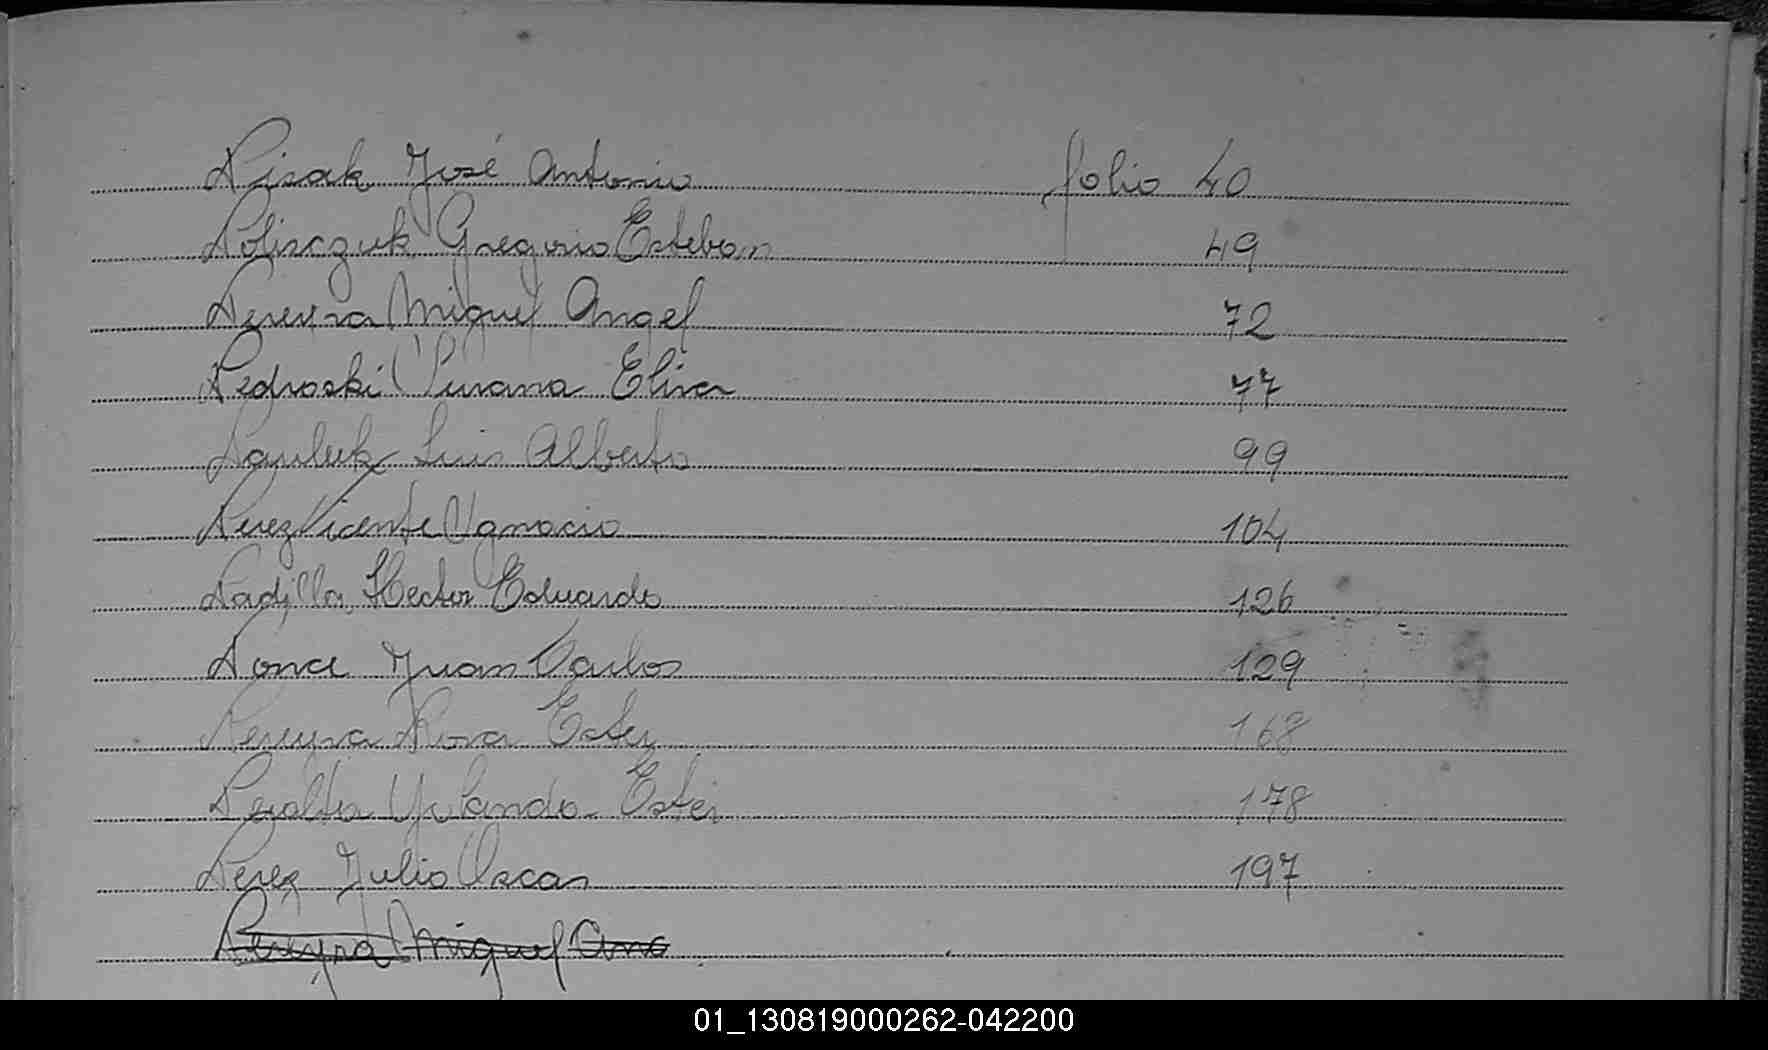 Pisak José Antonio folio 40
Polisczuk Gregorio Esteban 49
Pereyra Miguel Angel 72
Pedroski Susana Elisa 77
Pauluk Luis Alberto 99
Perez Vicente Ygnacio 104
Padilla, Hector Eduardo 126
Ponce Juan Carlos 129
Pereyra Rosa Ester 168
Peralta Yolanda Ester 178
Perez Julio Oscar 197
Pereyra Miguel Ang
01_130819000262-042200